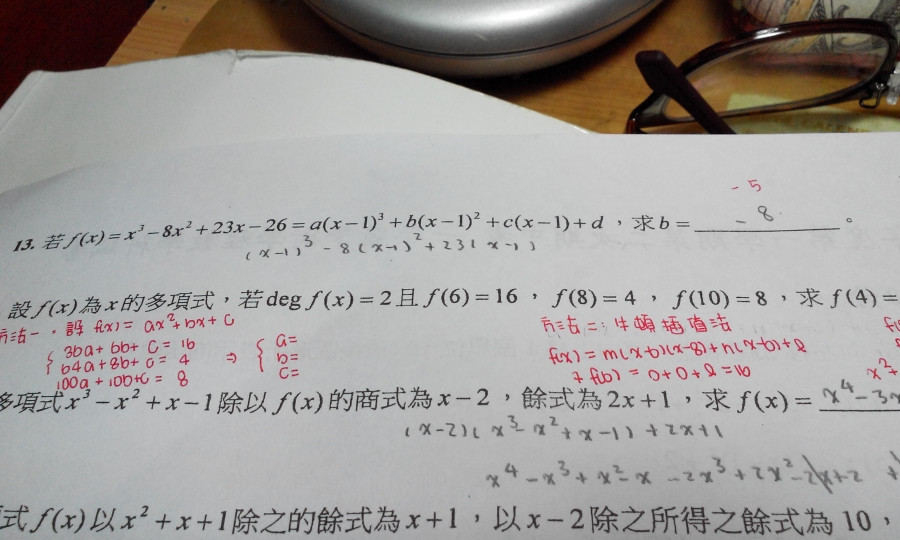 -5
13. 若f(x)=x³-8x²+23x-26=a(x-1)³+b(x-1)²+c(x-1)+d,求b= -8 。
(x-1)³-8(x-1)²+23(x-1)
設f(x)為x的多項式,若deg f(x)=2且f(6)=16,f(8)=4,f(10)=8,求f(4)=
方法一:設f(x)=ax²+bx+c
36a+6b+c=16
64a+8b+c=4
100a+10b+c=8
⇒ { a=
b=
c=
方法二:牛頓插值法
f(x)=m(x-6)(x-8)+n(x-6)+l
f(6)=0+0+l=16
x²+
多項式x³-x²+x-1除以f(x)的商式為x-2,餘式為2x+1,求f(x)= x⁴-3x
(x-2)(x³-x²+x-1)+2x+1
x⁴-x³+x²-x-2x³+2x²-2x+2
式f(x)以x²+x+1除之的餘式為x+1,以x-2除之所得之餘式為10,